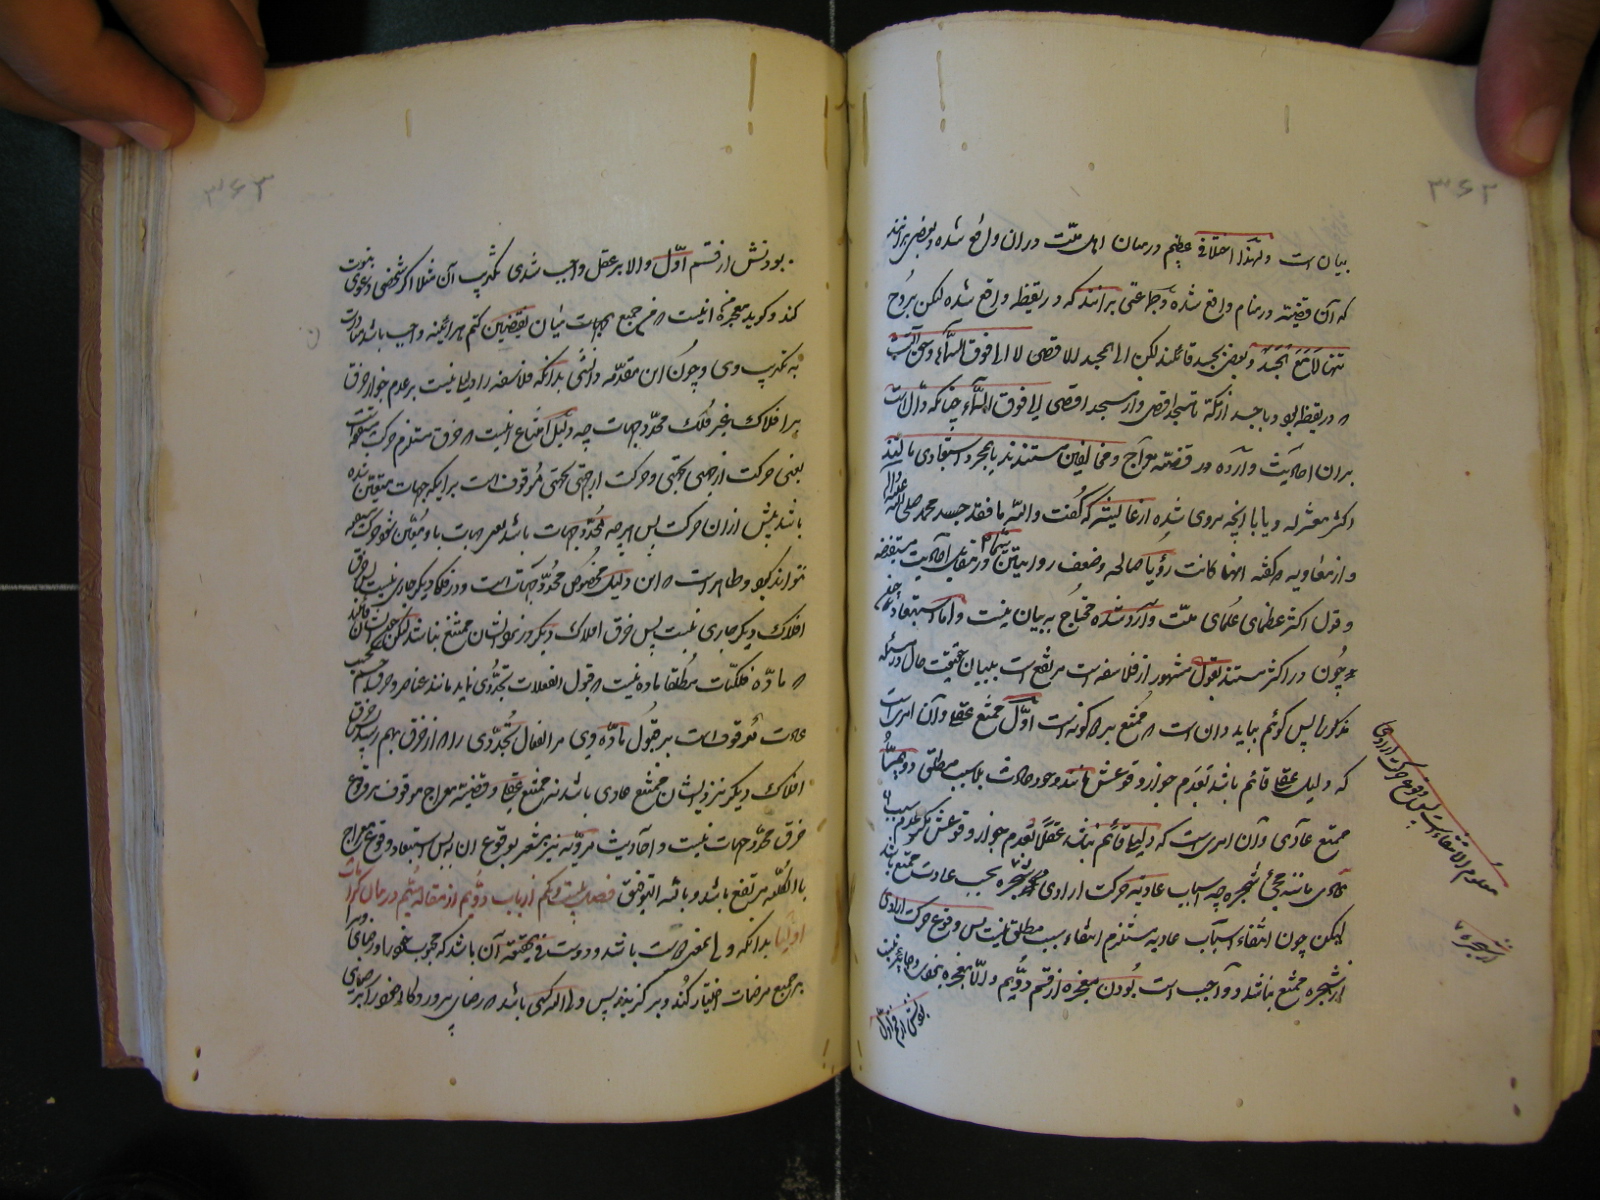 ۳۶۲
بیان است ولهذا اختلافی عظیم درمیان اهل ملّت دران واقع شده وبعضی برانند
که آن قضیّه درمنام واقع شده وجماعتی برانند که در یقظه واقع شده لکن بروح
تنها لا مع الجسد وبعضی بجسد قائلند لکن الی المسجد الاقصی لا الی فوق السماء وحق آنست
که در یقظه بود وباجسد از مکّه تا مسجد اقصی واز مسجد اقصی الی فوق السماء چنانکه دالست
بران احادیث وارده در قضیّه معراج ومخالفین مستندند یا بمجرد استبعادی مانند
اکثر معتزله ویا بانچه مروی شده از عایشه که گفت والله ما فقد جسد محمد صلی الله علیه وآله
واز معاویه که گفته انها کانت رؤیا صالحه وضعف روایتین در مقابل احادیث مستفیضه
وقول اکثر عظمای علمای ملّت وارد شده محتاج به بیان نیست واما استبعاد
چون در اکثر مستند بقول مشهور از فلاسفه است مرتفع است ببیان حقیقت حال در مسئله
مذکوره پس کوئیم بباید دانست که ممتنع بر دو کونه است اوّل ممتنع عقلی وآن امریست
که دلیل عقلی قائم باشد بعدم جواز وقوعش مانند وجود حادث بلا سبب مطلقا دویم
ممتنع عادی وآن امریست که دلیل قائم نباشد عقلاً بعدم جواز وقوعش مکر عدم سبب
عادی مانند مجئ شجره چه اسباب عادیه حرکت ارادی شجره بحسب عادت ممتنع باشد
لیکن چون انتفاء اسباب عادیه مستلزم انتفاء سبب مطلق نیست پس وقوع حرکت ارادی
از شجره ممتنع نباشد وواجب است بودن معجزه از قسم دویم والّا معجزه نخواهد
بودنش از قسم اوّل
معلوم الانتفاء است پس وقوع حرکت ارادی
از شجره
۳۶۳
بودنش از قسم اوّل والا بر عقل واجب شدی تکذیب آن مثلا اکر شخصی دعوی نبوت
کند وکوید معجزه من اینست که من جمیع جهات میان نقیضین کنم هراینه واجب باشد مبادرت
به تکذیب وی وچون این مقدّمه دانستی بدانکه فلاسفه را دلیلی نیست بر عدم جواز خرق
بر افلاک بغیر فلک محدّد جهات چه دلیل امتناع اینست که خرق مستلزم حرکت مستقیم است
یعنی حرکت از جهتی بجهتی وحرکت از جهتی بجهتی موقوف است بر اینکه جهات متعیّن شده
باشد پیش از ان حرکت پس هرچه محدّد جهات باشد یعنی جهات باو متعیّن شود حرکت مستقیمه
نتواند کرد وظاهر است که این دلیل مخصوص محدّد جهات است ودر فلک دیکر جاری نیست پس خرق
افلاک دیکر جاری نیست پس خرق افلاک دیکر در نزد ایشان ممتنع نباشد لیکن چون ایشان قائلند
که مادّه فلکیّات مطلقا ماده نیست که قبول انفعالات تجدّدی نماید مانند عناصر وخرق بحسب
عادت موقوف است بر قبول مادّه وی مر انفعال تجدّدی را که از خرق بهم رسد پس خرق
افلاک دیکر نزد ایشان ممتنع عادی باشد نه ممتنع عقلی وقضیّه معراج موقوف بر وقوع
خرق محدّد جهات نیست واحادیث مرویّه نیز مشعر بوقوع ان نه پس استبعاد وقوع معراج
بالکلیّه مرتفع باشد وبالله التوفیق فصل بیست ویکم از باب دویم از مقاله سیّم در بیان کرامات
اولیا بدانکه ولی بمعنی دوست باشد ودوست فی الحقیقه آن باشد که محبوب خود را ورضای اورا
بر جمیع مرضات اختیار کند وبر کزیند پس ولی الله کسی باشد که رضای پروردکار خود را بر رضای